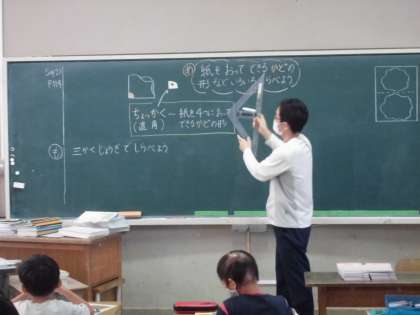 め 紙をおって できるかどの
形など いろいろしらべよう
ちょっかく〜紙を4つにおって
(直角) できるかどの形
三かくじょうぎでしらべよう